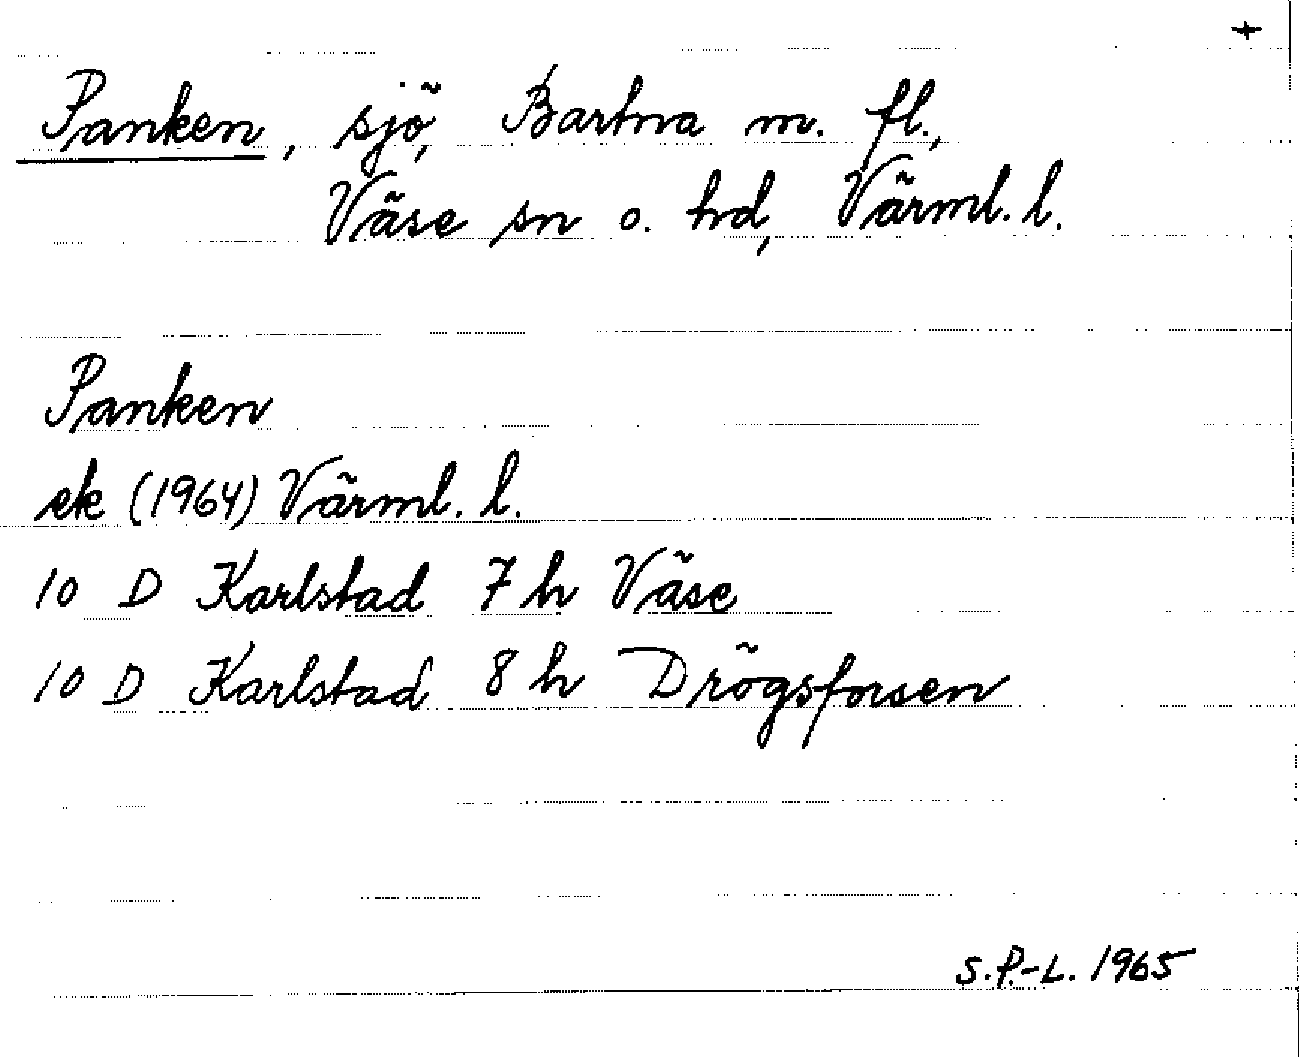 +
Panken, sjö, Bartna m. fl.,
Väse sn o. hd, Värml. l.
Panken
ek (1964) Värml. l.
10 D Karlstad 7h Väse
10 D Karlstad 8h Drögsforsen
S.P.-L. 1965